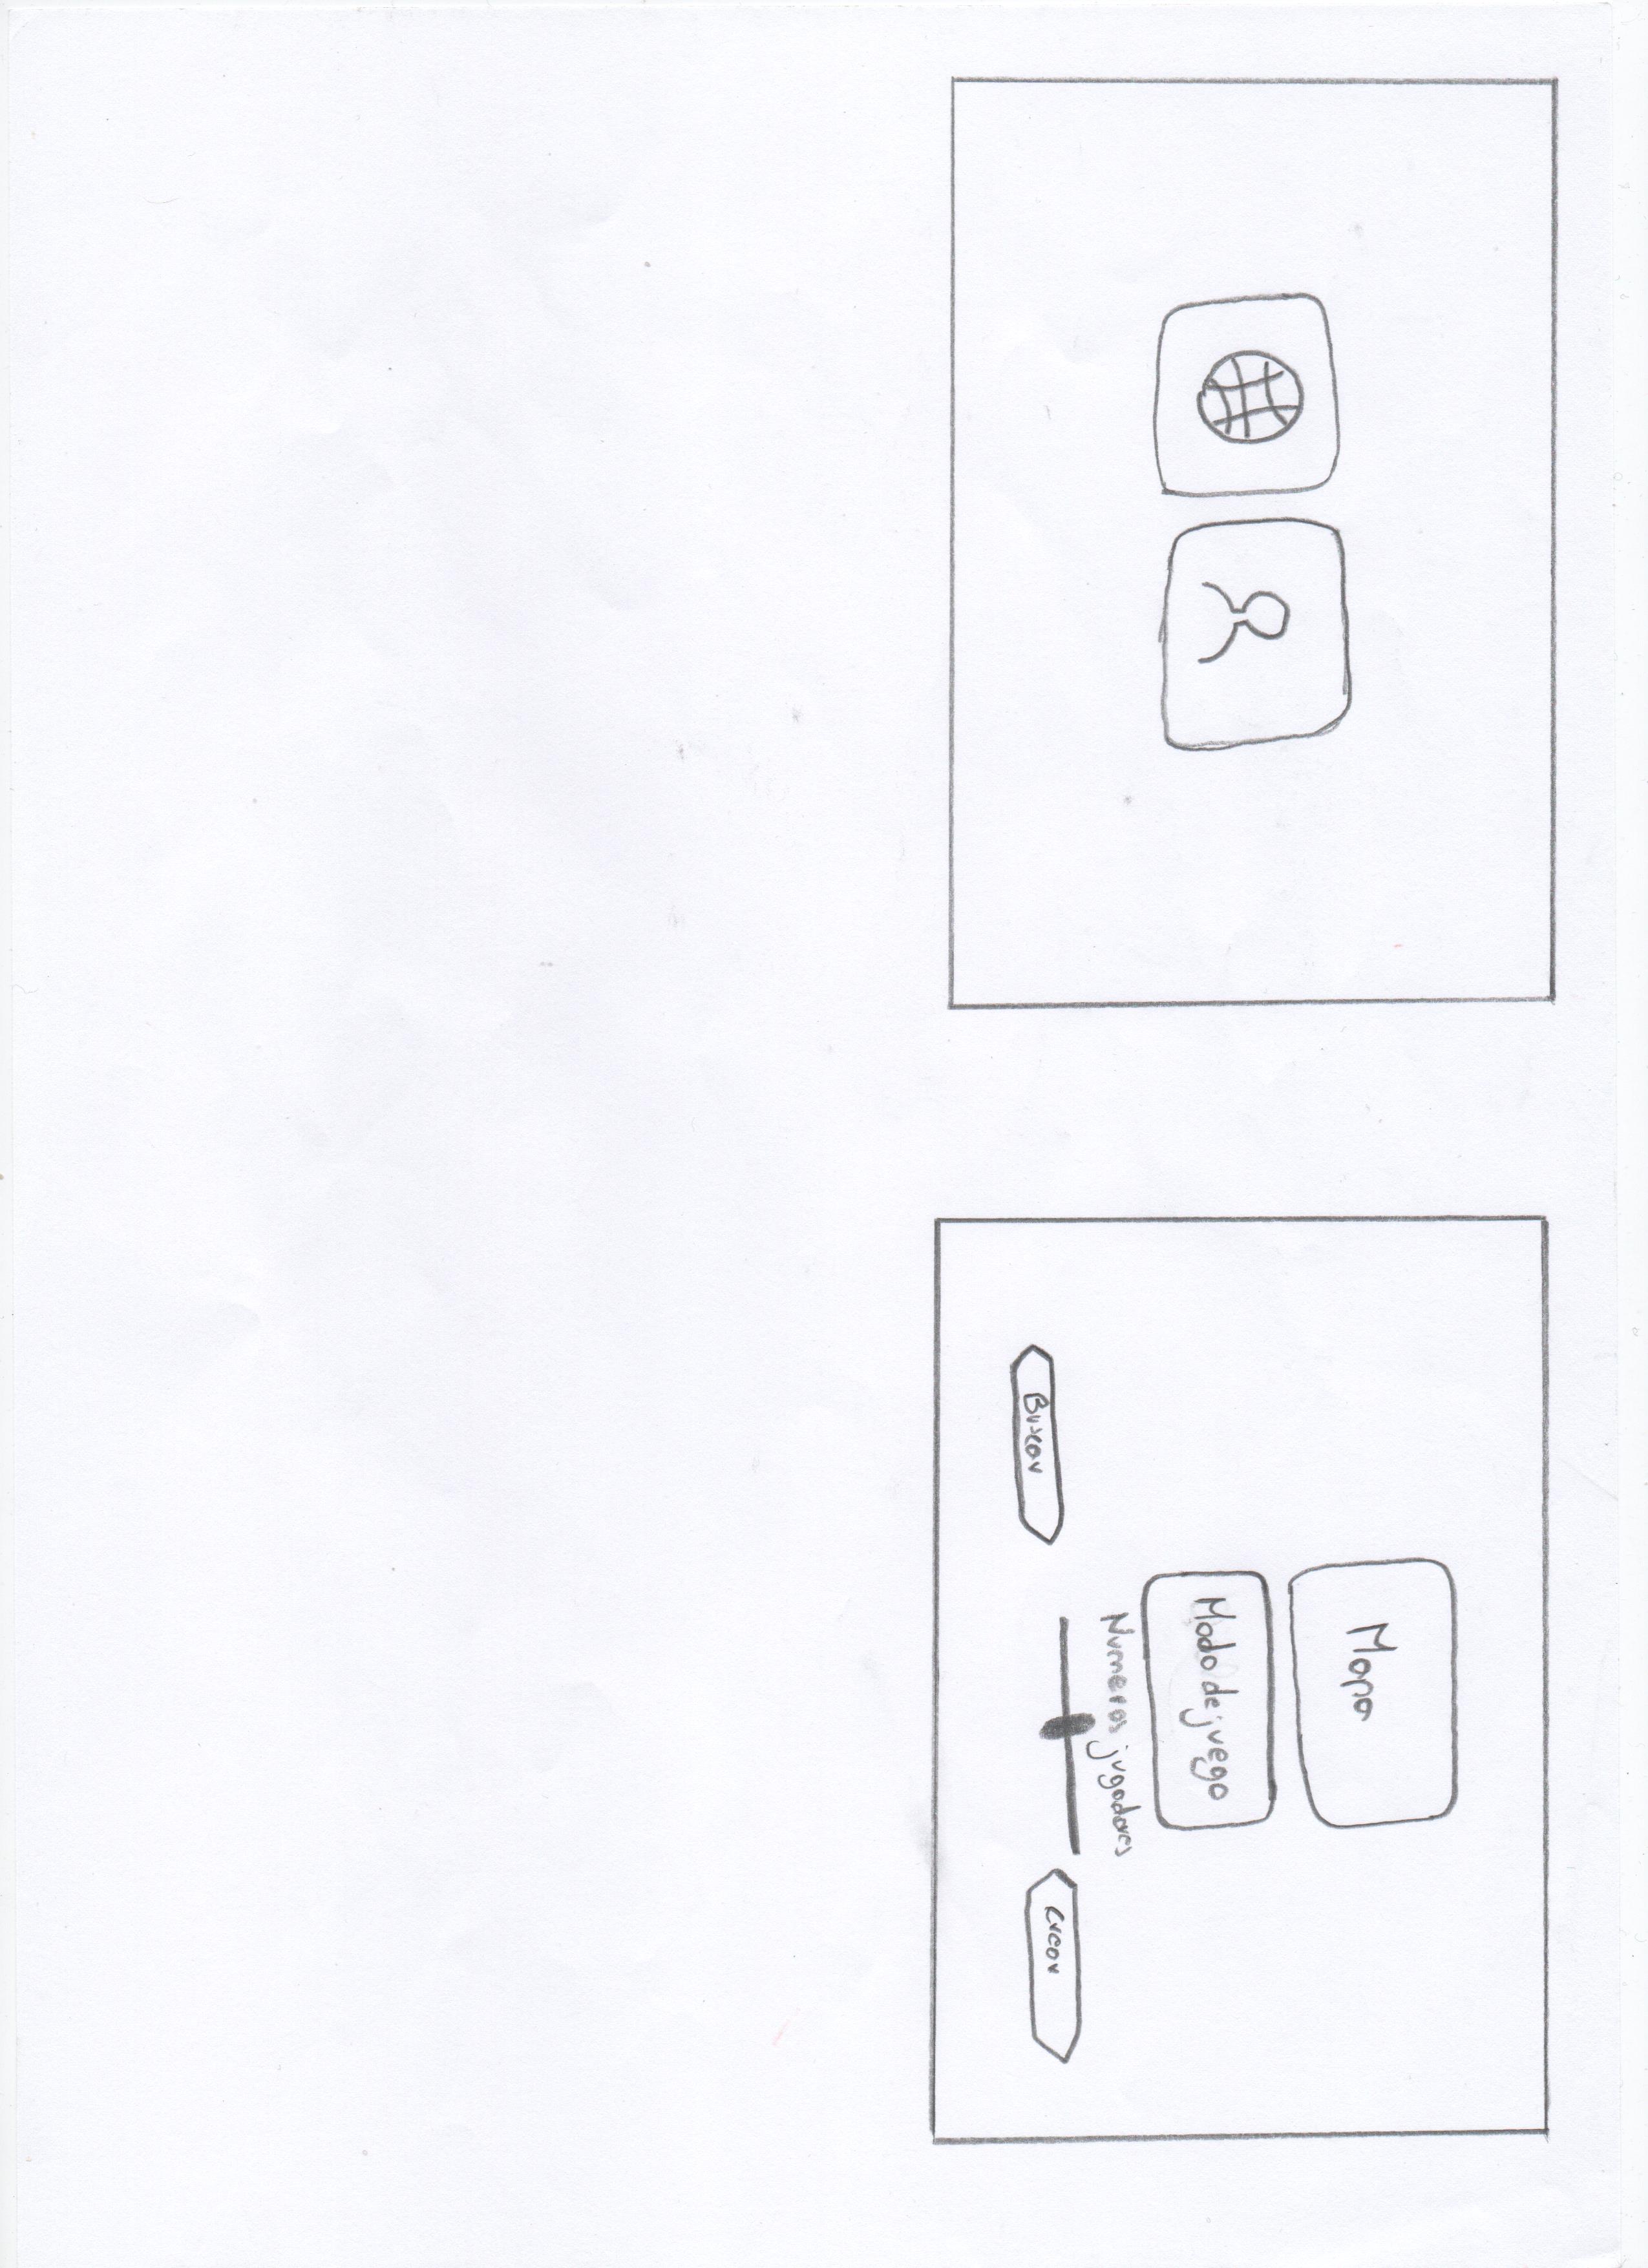 Mapa
Modo de juego
Numeros jugadores
Buscar
Crear